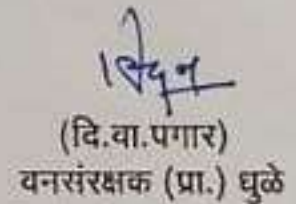 (दि.वा.पगार)
वनसंरक्षक (प्रा.) धुळे